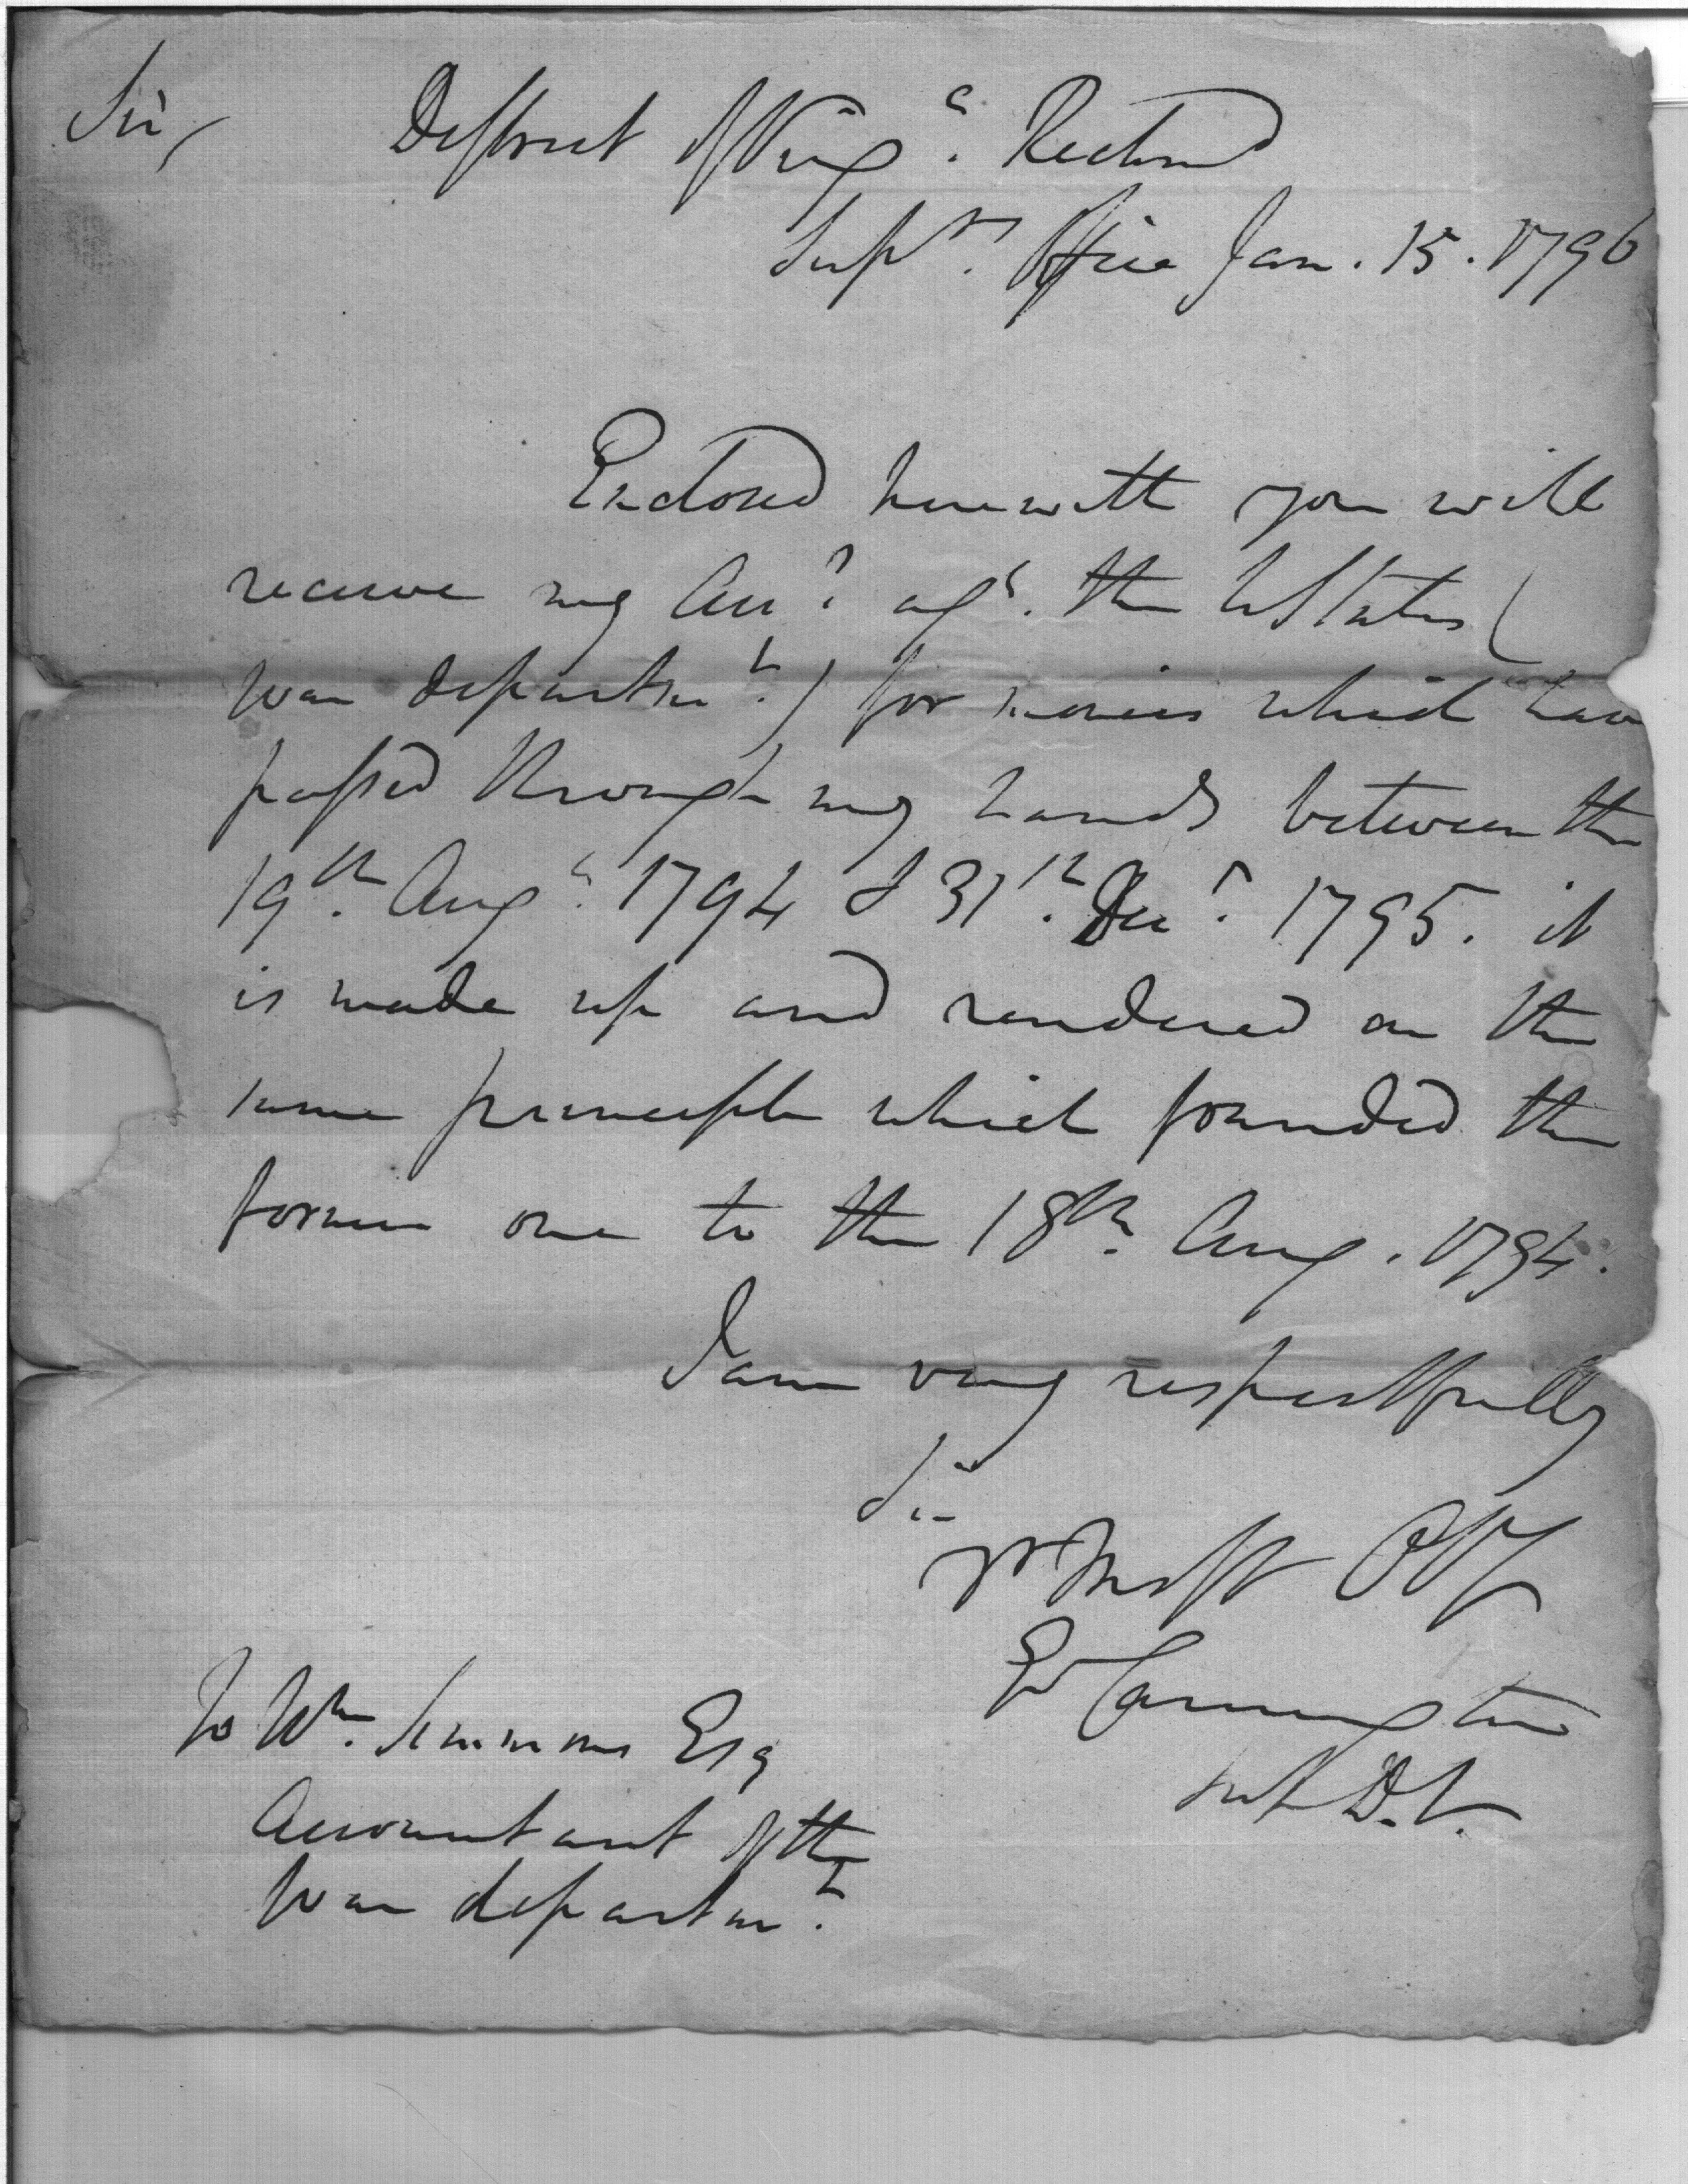 Sir,
District of Virga. Richmd
Suprs. Office Jan. 15. 1796
Enclosed herewith you will
receive my Acct. agt. the UStates (
War departmt.) for monies which have
passed through my hands between the
19th. Augt. 1794 & 31st. Decr. 1795. it
is made up and rendered on the
same principle which founded the
former one to the 18th. Aug. 1794.
I am very respectfully
Sir
yr Most Ob
Ed Carrington
D.V.
To Wm. Simmons Esq
Accountant of the
War departmt.